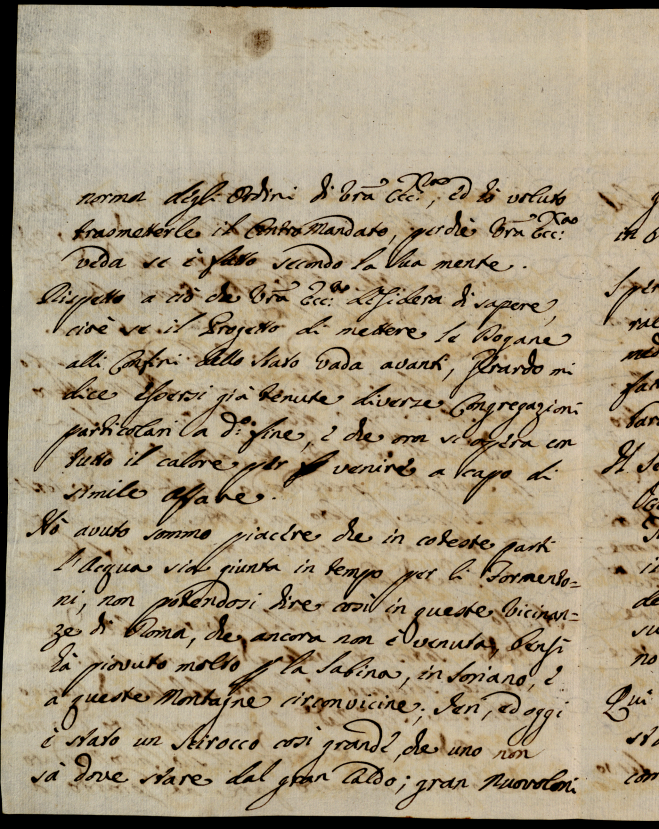 norma degl' Ordini di Vrã Ecc:ª, ed hò voluto
trasmetterle il ContraMandato, perchè Vrã Ecc:ª
veda se è fatto secondo la sua mente.
Rispetto a ciò che Vrã Ecc:ª desidera di sapere,
cioè se il Progetto di mettere le Dogane
alli Confini dello Stato vada avanti, mi
dice essersi già tenute diverse Congregazioni
particolari a d:º fine, e che ora si opera con
tutto il calore per venire a capo di
simile affare.
Hò avuto sommo piacere che in coteste parti
l'Acqua sia giunta in tempo per li Formento=
ni, non potendosi dire così in queste Vicinan=
ze di Roma, che ancora non è venuta, bensì
hà piovuto molto p la Sabina, in Soriano, e
a queste Montagne circonvicine; Ieri, ed oggi
è stato un Scirocco così grande, che uno non
sà dove stare dal gran Caldo; gran Nuvoloni